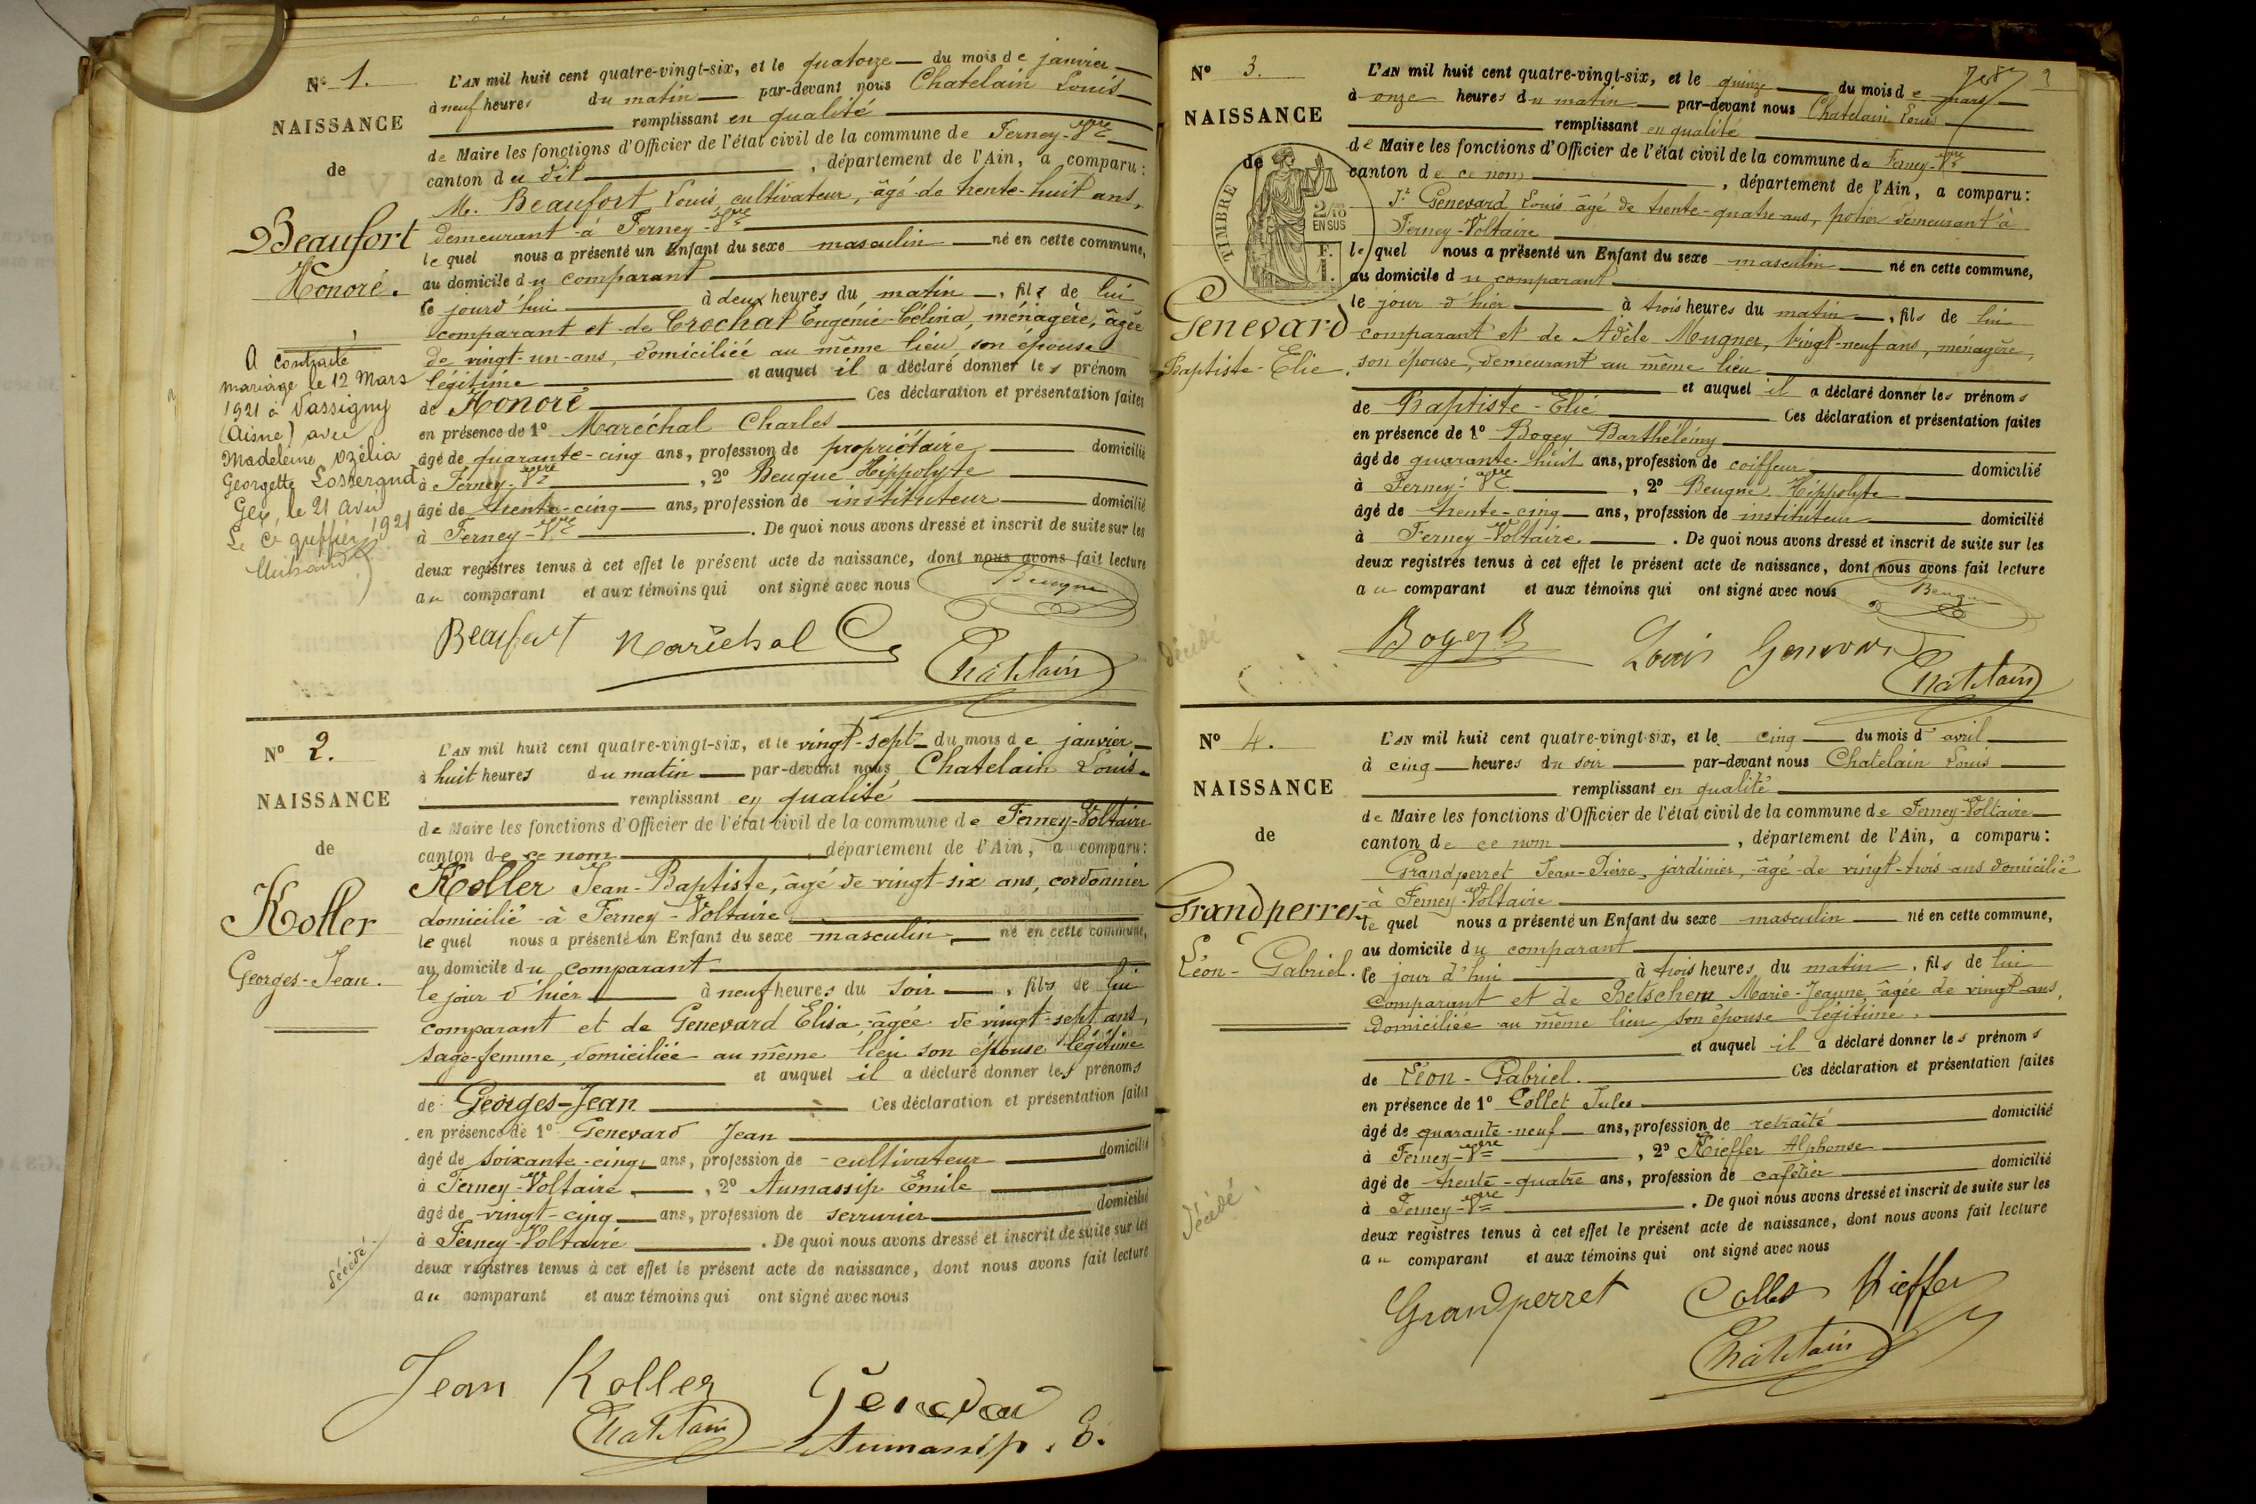 N° 1.
NAISSANCE
de
Beaufort
Honoré.
A contracté
mariage le 12 Mars
1921 à Vassigny
(Aisne) avec
Madeleine Ozélia
Georgette
Gex, le 21 avril
1921
Le greffier
L'AN mil huit cent quatre-vingt-six, et le quatorze du mois de janvier
à neuf heures du matin par-devant nous Chatelain Louis
remplissant en qualité
de Maire les fonctions d'Officier de l'état civil de la commune de Ferney-Vre
canton du dit, département de l'Ain, a comparu:
M. Beaufort Louis, cultivateur, âgé de trente-huit ans,
demeurant à Ferney-Vre
lequel nous a présenté un Enfant du sexe masculin né en cette commune,
au domicile du comparant
le jourd'hui à deux heures du matin, fils de lui
comparant et de Crochat Eugénie-Célina, ménagère, âgée
de vingt-un-ans, domiciliée au même lieu, son épouse
légitime et auquel il a déclaré donner les prénom
de Honoré Ces déclaration et présentation faites
en présence de 1° Maréchal Charles
âgé de quarante-cinq ans, profession de propriétaire domicilié
à Ferney-Vre, 2° Beugue Hippolyte
âgé de trente-cinq ans, profession de instituteur domicilié
à Ferney-Vre. De quoi nous avons dressé et inscrit de suite sur les
deux registres tenus à cet effet le présent acte de naissance, dont nous avons fait lecture
au comparant et aux témoins qui ont signé avec nous Beugue
Beaufort Maréchal C Chatelain
N° 2.
NAISSANCE
de
Koller
Georges-Jean.
décédé
L'AN mil huit cent quatre-vingt-six, et le vingt-sept du mois de janvier
à huit heures du matin par-devant nous Chatelain Louis
remplissant en qualité
de Maire les fonctions d'Officier de l'état civil de la commune de Ferney-Voltaire
canton de ce nom, département de l'Ain, a comparu:
Koller Jean-Baptiste, âgé de vingt-six ans, cordonnier
domicilié à Ferney-Voltaire
lequel nous a présenté un Enfant du sexe masculin né en cette commune,
au domicile du comparant
le jour d'hier à neuf heures du soir, fils de lui
comparant et de Genevard Elisa âgée de vingt-sept ans,
sage-femme, domiciliée au même lieu son épouse légitime
et auquel il a déclaré donner les prénoms
de Georges-Jean Ces déclaration et présentation faites
en présence de 1° Genevard Jean
âgé de soixante-cinq ans, profession de cultivateur domicilié
à Ferney-Voltaire, 2° Aumassip Emile
âgé de vingt-cinq ans, profession de serrurier domicilié
à Ferney-Voltaire. De quoi nous avons dressé et inscrit de suite sur les
deux registres tenus à cet effet le présent acte de naissance, dont nous avons fait lecture
au comparant et aux témoins qui ont signé avec nous
Jean Koller Genevard
Chatelain Aumassip. E.
N° 3.
NAISSANCE
de
TIMBRE
2/10
EN SUS
F.
1.
Genevard
Baptiste-Elie.
décédé
L'AN mil huit cent quatre-vingt-six, et le quinze du mois de mars
à onze heures du matin par-devant nous Chatelain Louis
remplissant en qualité
de Maire les fonctions d'Officier de l'état civil de la commune de Ferney-Vre
canton de ce nom, département de l'Ain, a comparu:
Genevard Louis âgé de trente-quatre-ans, potier demeurant à
Ferney-Voltaire
lequel nous a présenté un Enfant du sexe masculin né en cette commune,
au domicile du comparant
le jour d'hier à trois heures du matin, fils de lui
comparant et de Adèle Mugner, vingt-neuf ans, ménagère,
son épouse, demeurant au même lieu
et auquel il a déclaré donner les prénoms
de Baptiste-Elie Ces déclaration et présentation faites
en présence de 1° Bogey Barthélemy
âgé de quarante-huit ans, profession de coiffeur domicilié
à Ferney-Vre, 2° Beugue Hippolyte
âgé de trente-cinq ans, profession de instituteur domicilié
à Ferney-Voltaire. De quoi nous avons dressé et inscrit de suite sur les
deux registres tenus à cet effet le présent acte de naissance, dont nous avons fait lecture
au comparant et aux témoins qui ont signé avec nous Beugue
Bogey B Louis Genevard Chatelain
N° 4.
NAISSANCE
de
Grandperret
Léon-Gabriel.
décédé.
L'AN mil huit cent quatre-vingt-six, et le cinq du mois d'avril
à cinq heures du soir par-devant nous Chatelain Louis
remplissant en qualité
de Maire les fonctions d'Officier de l'état civil de la commune de Ferney-Voltaire
canton de ce nom, département de l'Ain, a comparu:
Grandperret Jean-Pierre, jardinier, âgé de vingt-trois ans domicilié
à Ferney-Voltaire
lequel nous a présenté un Enfant du sexe masculin né en cette commune,
au domicile du comparant
le jour d'hui à trois heures du matin, fils de lui
comparant et de Betschen Marie-Jeanne âgée de vingt-ans,
domiciliée au même lieu son épouse légitime.
et auquel il a déclaré donner les prénoms
de Léon-Gabriel. Ces déclaration et présentation faites
en présence de 1° Collet Jules
âgé de quarante-neuf ans, profession de retraité domicilié
à Ferney-Vre, 2° Kieffer Alphonse
âgé de trente-quatre ans, profession de cafetier domicilié
à Ferney-Vre. De quoi nous avons dressé et inscrit de suite sur les
deux registres tenus à cet effet le présent acte de naissance, dont nous avons fait lecture
au comparant et aux témoins qui ont signé avec nous
Grandperret Collet Kieffer
Chatelain